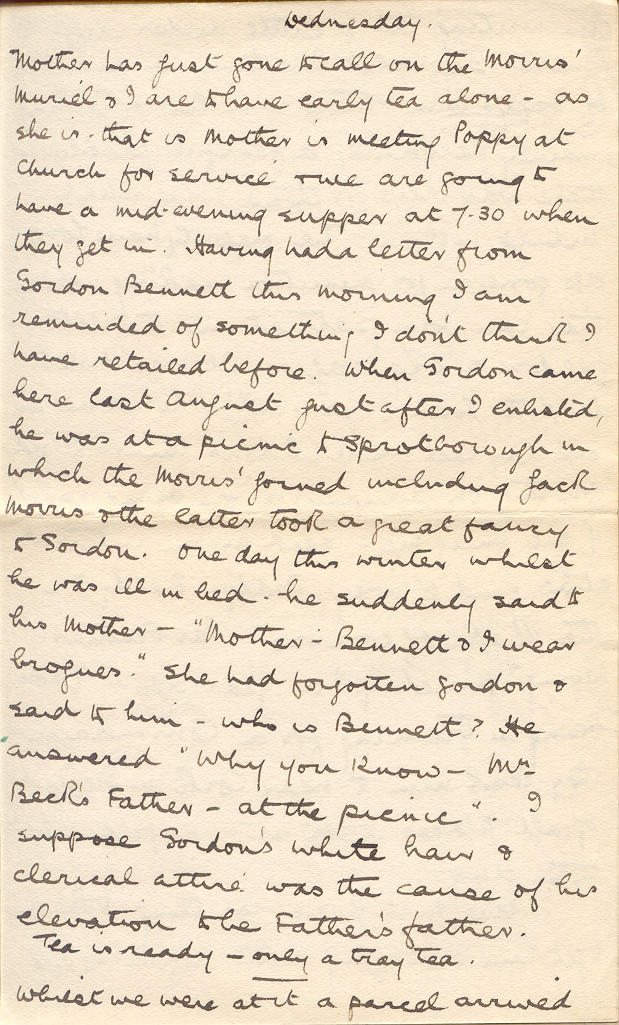 Wednesday.
Mother has just gone to call on the Morris'
Muriel & I are to have early tea alone - as
she is - that is Mother is meeting Poppy at
Church for service & we are going to
have a mid-evening supper at 7.30 when
they get in. Having had a letter from
Gordon Bennett this morning I am
reminded of something I don't think I
have retailed before. When Gordon came
here last August just after I enlisted,
he was at a picnic to Sprotborough in
which the Morris' joined including Jack
Morris & the latter took a great fancy
to Gordon. One day this winter whilst
he was ill in bed - he suddenly said to
his Mother - "Mother - Bennett & I wear
brogues." She had forgotten Gordon &
said to him - who is Bennett? He
answered "Why you know - Mr
Beck's Father - at the picnic". I
suppose Gordon's white hair &
clerical attire was the cause of his
elevation to be Father's father.
Tea is ready - only a tray tea.
Whilst we were at it a parcel arrived